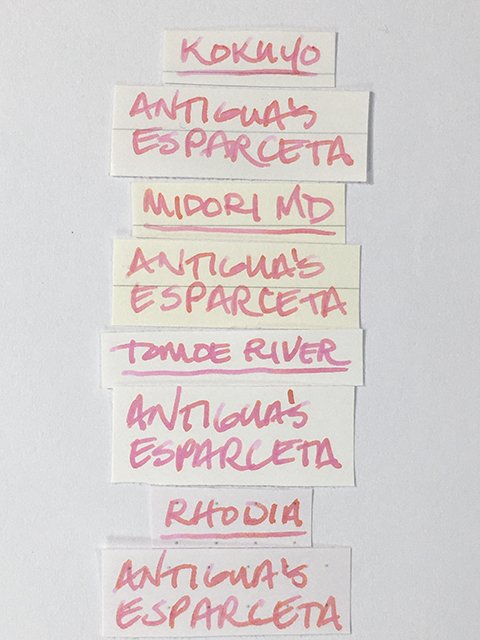 KOKUYO
ANTIGUA'S
ESPARCETA
MIDORI MD
ANTIGUA'S
ESPARCETA
TOMOE RIVER
ANTIGUA'S
ESPARCETA
RHODIA
ANTIGUA'S
ESPARCETA